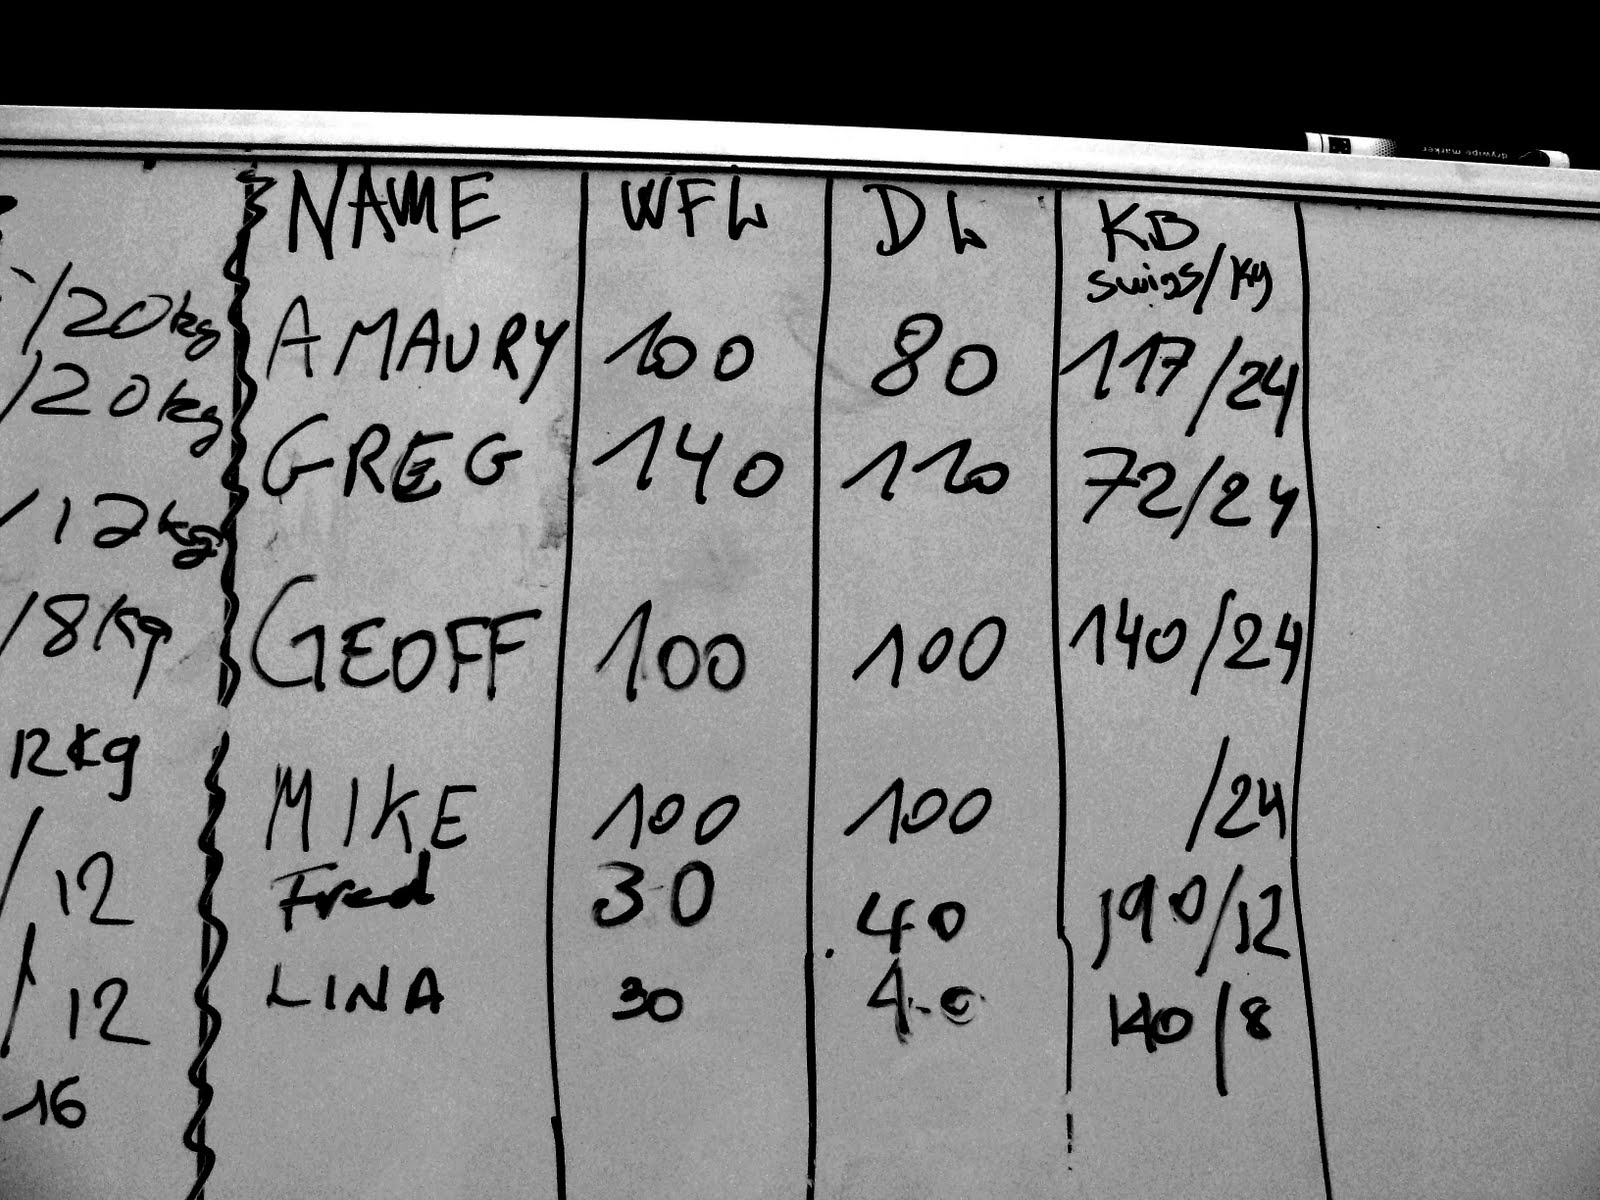 NAME WFL DL KB
swigs/kg
/20kg AMAURY 100 80 117/24
/20kg GREG 140 110 72/24
/12kg
/8kg GEOFF 100 100 140/24
12kg MIKE 100 100 /24
/12 Fred 30 40 190/12
/12 LINA 30 40 140/8
16
drywipe marker